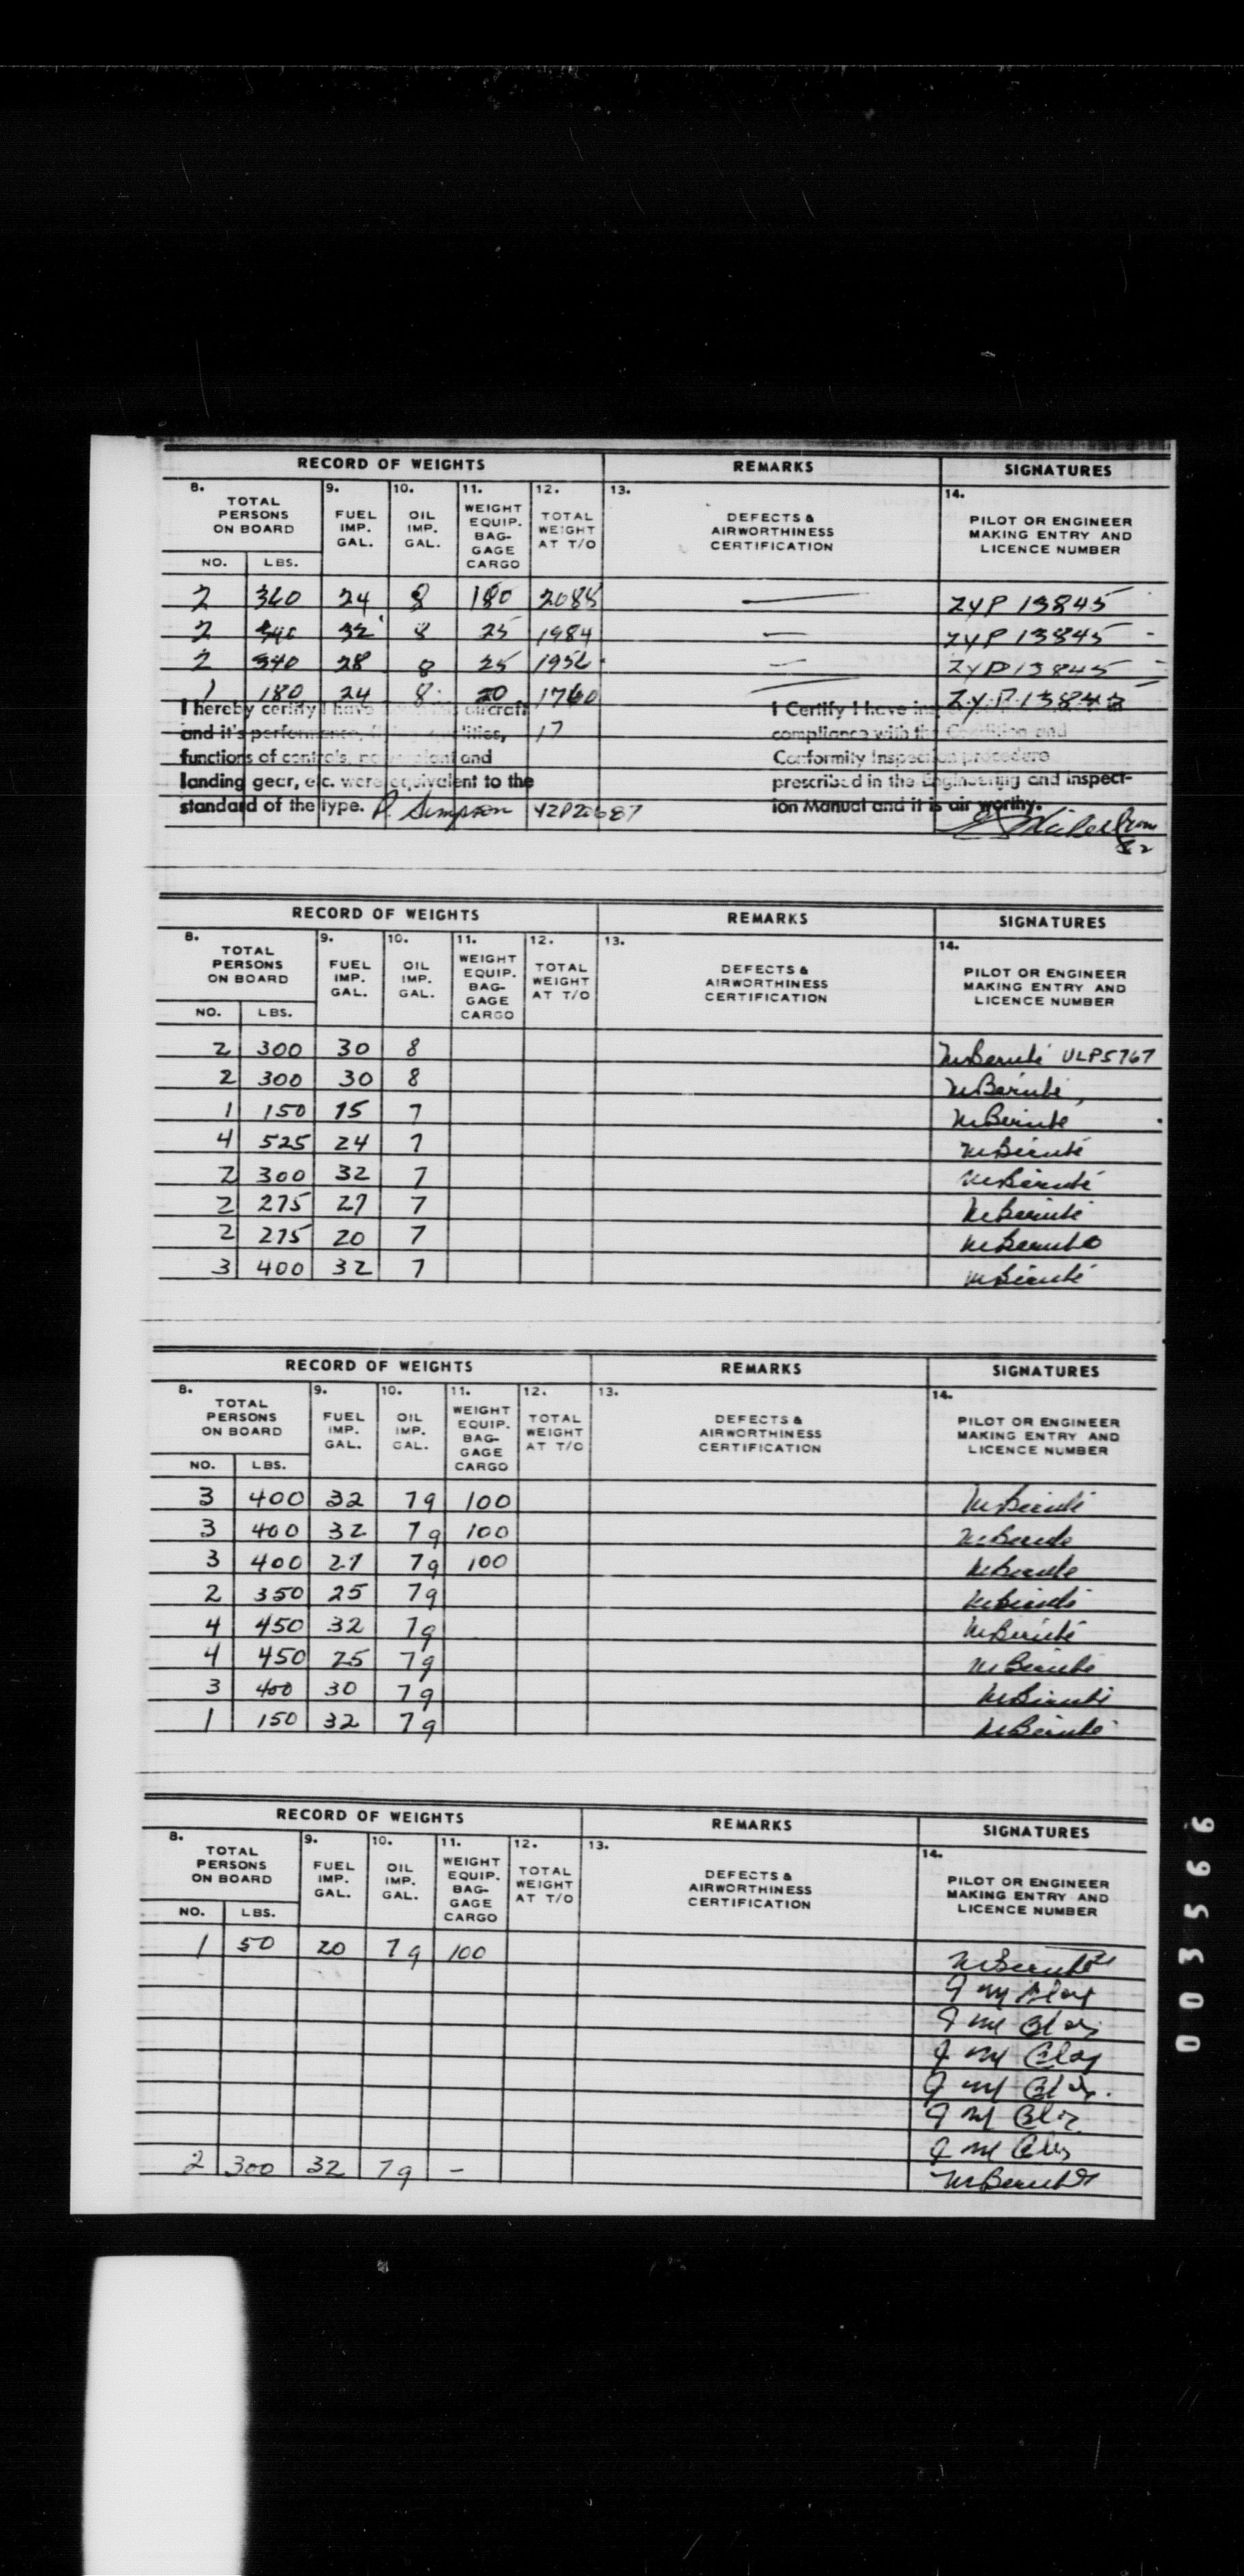 RECORD OF WEIGHTS REMARKS SIGNATURES
8. TOTAL PERSONS ON BOARD 9. FUEL IMP. GAL. 10. OIL IMP. GAL. 11. WEIGHT EQUIP. BAG- GAGE CARGO 12. TOTAL WEIGHT AT T/O 13. DEFECTS & AIRWORTHINESS CERTIFICATION 14. PILOT OR ENGINEER MAKING ENTRY AND LICENCE NUMBER
NO. LBS.
2 360 24 8 180 2088 — ZYP 13845
2 340 32 8 25 1984 — ZYP 13845
2 340 28 8 25 1956 — ZYP 13845
1 180 24 8 20 1760 — ZYP 13845
I hereby certify I have aircraft I Certify I have
and it's 17 compliance with the Condition and
functions of controls, and Conformity Inspection procedure
landing gear, etc. were equivalent to the prescribed in the Engineering and Inspect-
standard of the type. P. Simpson YZP20687 ion Manual and it is air worthy.
82
RECORD OF WEIGHTS REMARKS SIGNATURES
8. TOTAL PERSONS ON BOARD 9. FUEL IMP. GAL. 10. OIL IMP. GAL. 11. WEIGHT EQUIP. BAG- GAGE CARGO 12. TOTAL WEIGHT AT T/O 13. DEFECTS & AIRWORTHINESS CERTIFICATION 14. PILOT OR ENGINEER MAKING ENTRY AND LICENCE NUMBER
NO. LBS.
2 300 30 8 M Bérubé ULP5767
2 300 30 8 M Bérubé
1 150 15 7 M Bérubé
4 525 24 7 M Bérubé
2 300 32 7 M Bérubé
2 275 27 7 M Bérubé
2 275 20 7 M Bérubé
3 400 32 7 M Bérubé
RECORD OF WEIGHTS REMARKS SIGNATURES
8. TOTAL PERSONS ON BOARD 9. FUEL IMP. GAL. 10. OIL IMP. GAL. 11. WEIGHT EQUIP. BAG- GAGE CARGO 12. TOTAL WEIGHT AT T/O 13. DEFECTS & AIRWORTHINESS CERTIFICATION 14. PILOT OR ENGINEER MAKING ENTRY AND LICENCE NUMBER
NO. LBS.
3 400 32 7g 100 M Bérubé
3 400 32 7g 100 M Bérubé
3 400 27 7g 100 M Bérubé
2 350 25 7g M Bérubé
4 450 32 7g M Bérubé
4 450 25 7g M Bérubé
3 400 30 7g M Bérubé
1 150 32 7g M Bérubé
RECORD OF WEIGHTS REMARKS SIGNATURES
8. TOTAL PERSONS ON BOARD 9. FUEL IMP. GAL. 10. OIL IMP. GAL. 11. WEIGHT EQUIP. BAG- GAGE CARGO 12. TOTAL WEIGHT AT T/O 13. DEFECTS & AIRWORTHINESS CERTIFICATION 14. PILOT OR ENGINEER MAKING ENTRY AND LICENCE NUMBER
NO. LBS.
1 50 20 7g 100 M Bérubé
J M
J M
J M
J M
J M
J M
2 300 32 7g - M Bérubé
003566